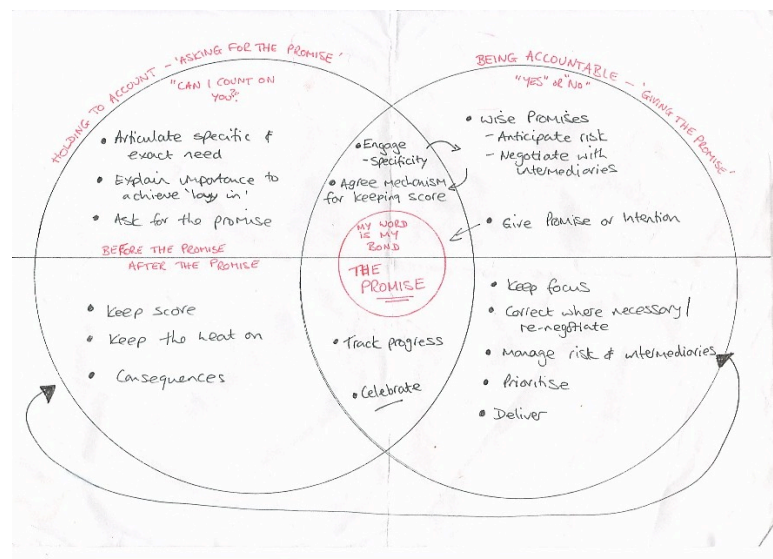 HOLDING TO ACCOUNT - 'ASKING FOR THE PROMISE'
"CAN I COUNT ON
YOU?"
• Articulate specific &
exact need
• Explain importance to
achieve 'buy in'
• Ask for the promise
BEFORE THE PROMISE
AFTER THE PROMISE
• Keep score
• Keep the heat on
• Consequences
• Engage
- Specificity
• Agree Mechanism
for keeping score
MY WORD
IS MY
BOND
THE
PROMISE
• Track progress
• Celebrate
BEING ACCOUNTABLE - 'GIVING THE PROMISE'
"YES" or "NO"
• Wise Promises
- Anticipate risk
- Negotiate with
intermediaries
• Give Promise or Intention
• Keep focus
• Correct where necessary/
re-negotiate
• Manage risk & intermediaries
• Prioritise
• Deliver